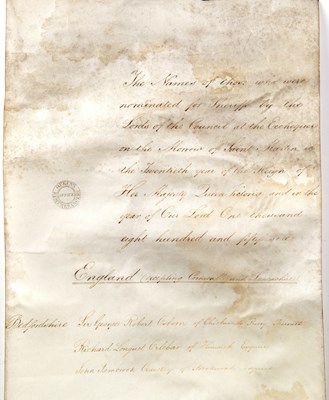 The Names of those who were
nominated for Sheriffs by the
Lords of the Council at the Exchequer
on the Morrow of Saint Martin in
the Twentieth year of the Reign of
Her Majesty Queen Victoria and in the
year of Our Lord One thousand
eight hundred and fifty six
England (excepting Cornwall and Lancashire)
Bedfordshire Sir George Robert Osborn of Chicksands Priory Baronet
Richard Longuet Orlebar of Hinwick Esquire
of